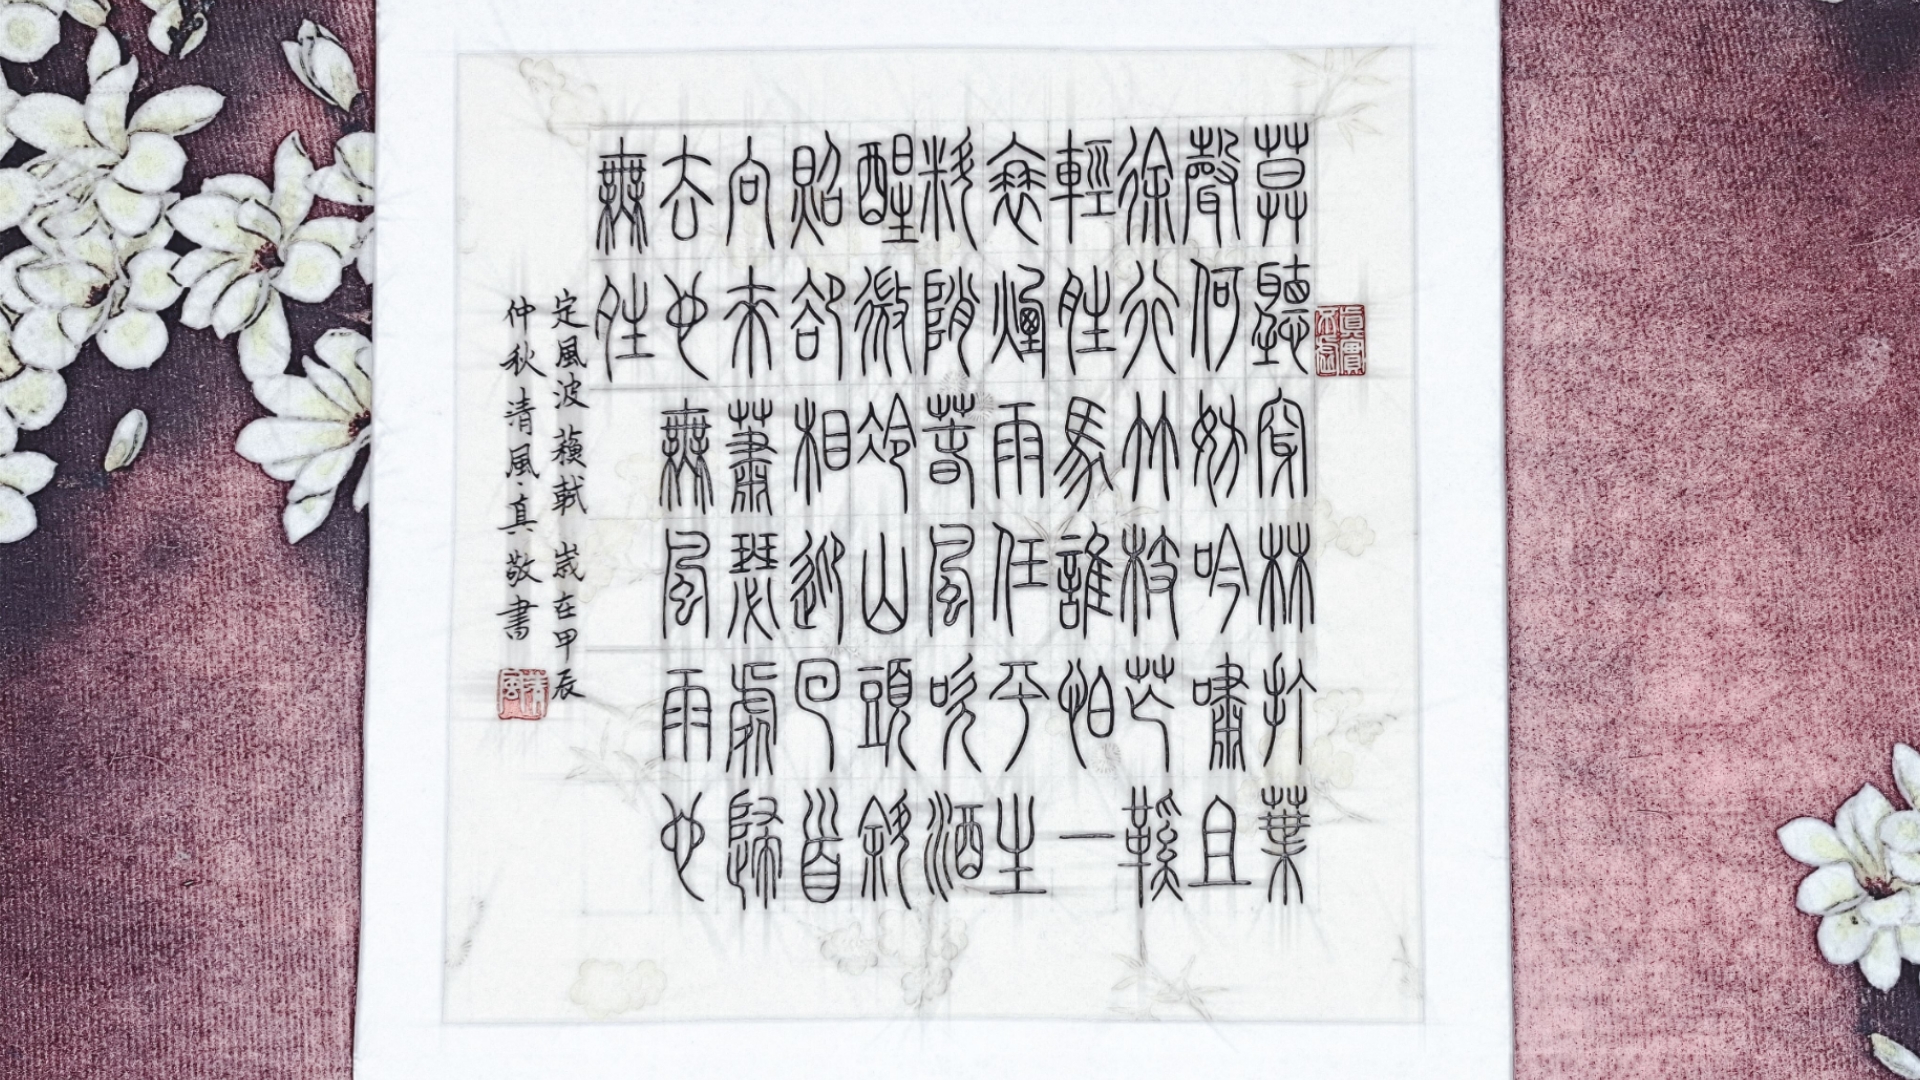 眞實不虛
莫聽穿林打葉
聲何妨吟嘯且
徐行竹杖芒鞵
輕胜馬誰怕一
蓑煙雨任平生
料陗春風吹酒
醒微冷山頭斜
照卻相迎回首
向來蕭瑟處歸
去也無風雨也
無晴
定風波 蘇軾 歲在甲辰
仲秋清風真敬書